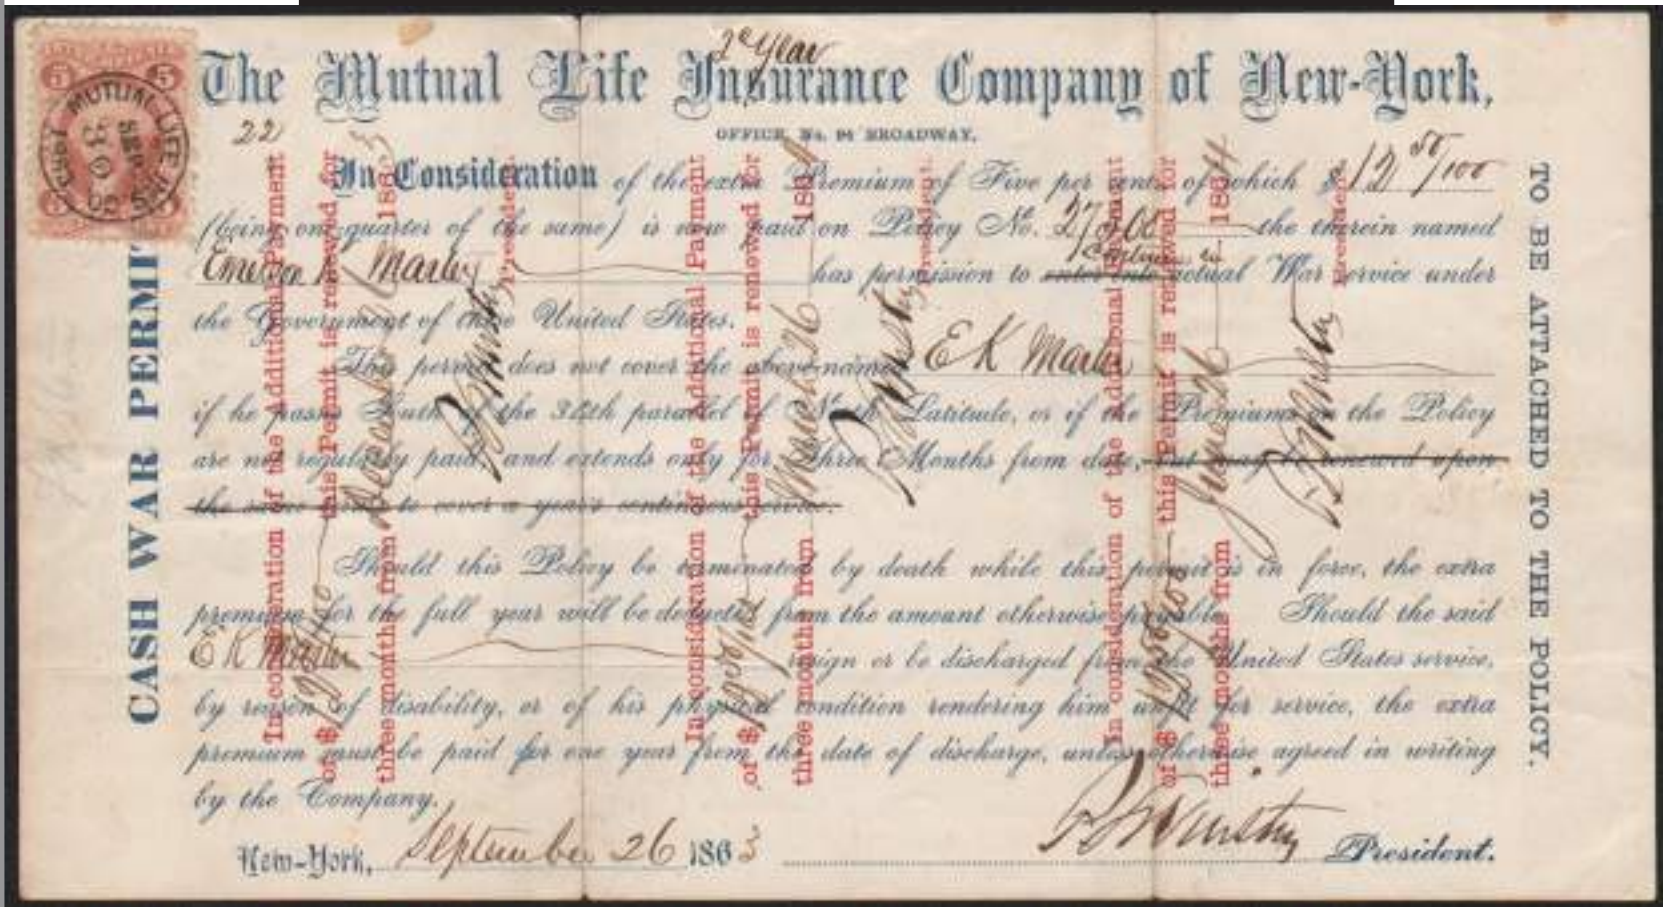 2d Year
The Mutual Life Insurance Company of New-York,
22
OFFICE, No. 94 BROADWAY.
In Consideration of the extra Premium of Five per cent. of which $12 50/100
(being one quarter of the same) is now paid on Policy No. 27900 the therein named
Marley has permission to enter into Continue in actual War service under
the Government of these United States.
This permit does not cover the above-named E K
if he passes South of the 34th parallel of North Latitude, or if the Premiums on the Policy
are not regularly paid, and extends only for Three Months from date, but may be renewed upon
the same terms to cover a year's continuous service.
Should this Policy be terminated by death while this permit is in force, the extra
premium for the full year will be deducted from the amount otherwise payable. Should the said
E K resign or be discharged from the United States service,
by reason of disability, or of his physical condition rendering him unfit for service, the extra
premium must be paid for one year from the date of discharge, unless otherwise agreed in writing
by the Company.
New-York, September 26 1863 President.
CASH WAR PERMIT
TO BE ATTACHED TO THE POLICY.
In consideration of the Additional Payment
of $12 50/100 this Permit is renewed for
three months from December 26 1863
President.
In consideration of the Additional Payment
of $12 50/100 this Permit is renewed for
three months from March 26 1864
President.
In consideration of the Additional Payment
of $12 50/100 this Permit is renewed for
three months from June 26 1864
President.
5 5
MUTUAL LIFE INS. CO.
SEP
30